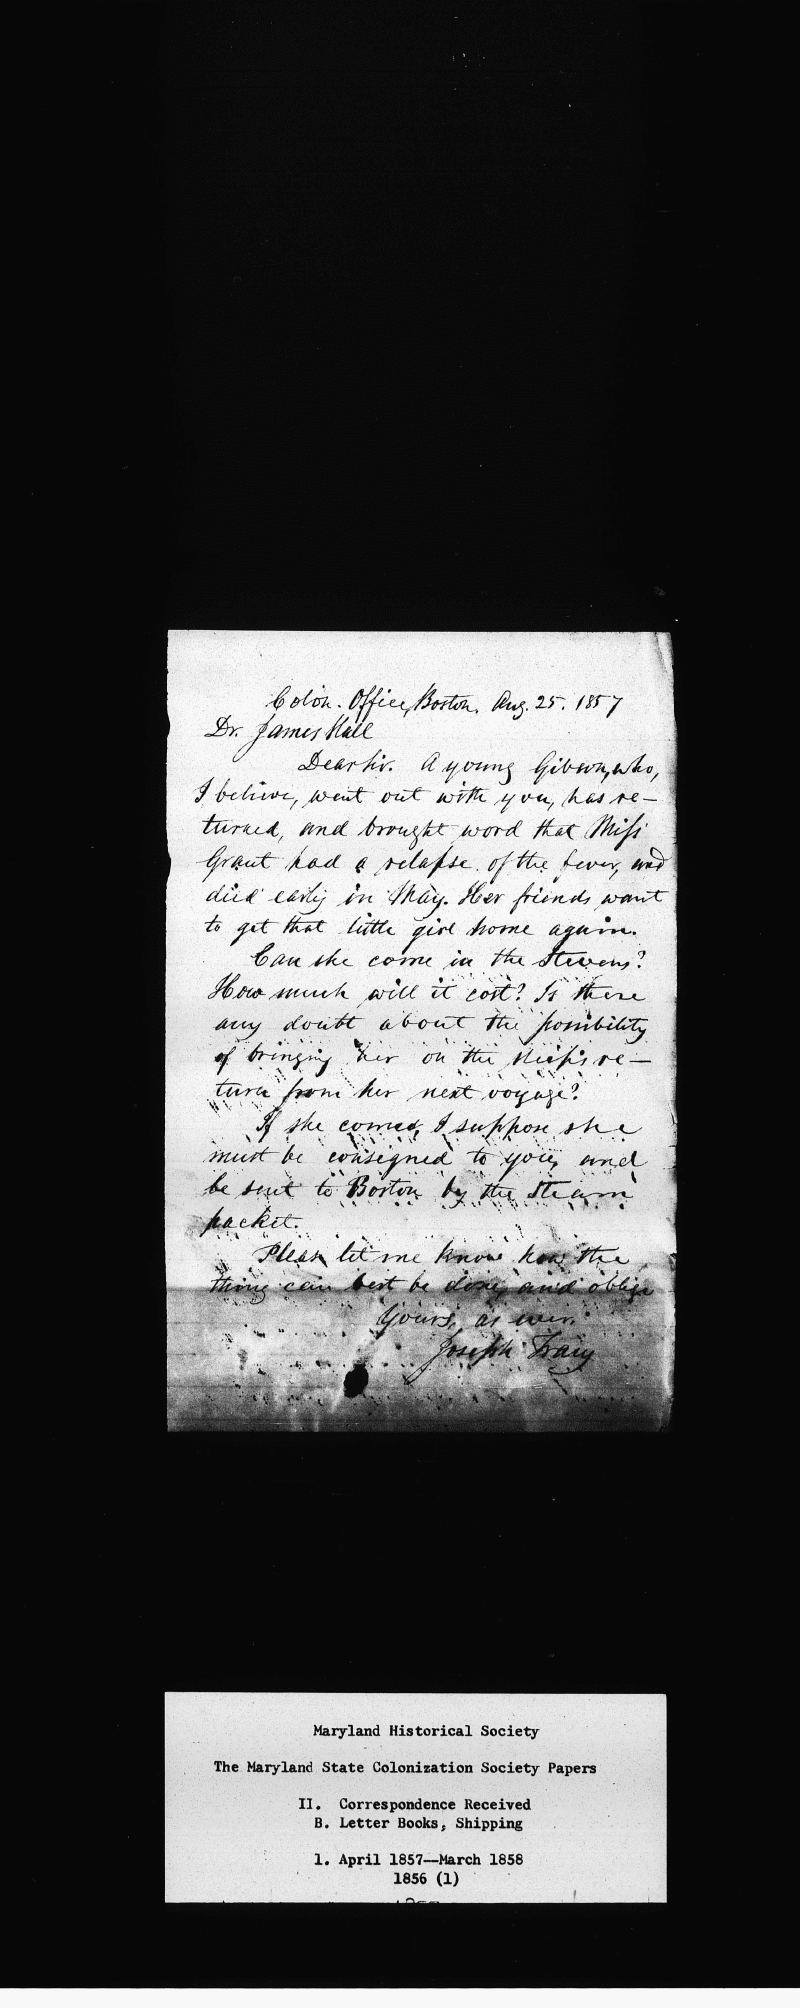 Colon. Office, Boston. Aug. 25. 1857
Dr. James Hall
Dear Sir. A young Gibson, who,
I believe, went out with you, has re-
turned, and brought word that Miss
Grant had a relapse of the fever, and
died early in May. Her friends want
to get that little girl home again.
Can she come in the Stevens?
How much will it cost? Is there
any doubt about the possibility
of bringing her on the ship's re-
turn from her next voyage?
If she comes, I suppose she
must be consigned to you, and
be sent to Boston by the steam
packet.
Please let me know how the
thing can best be done, and oblige
Yours, as ever.
Joseph Tracy
Maryland Historical Society
The Maryland State Colonization Society Papers
II. Correspondence Received
B. Letter Books, Shipping
1. April 1857--March 1858
1856 (1)